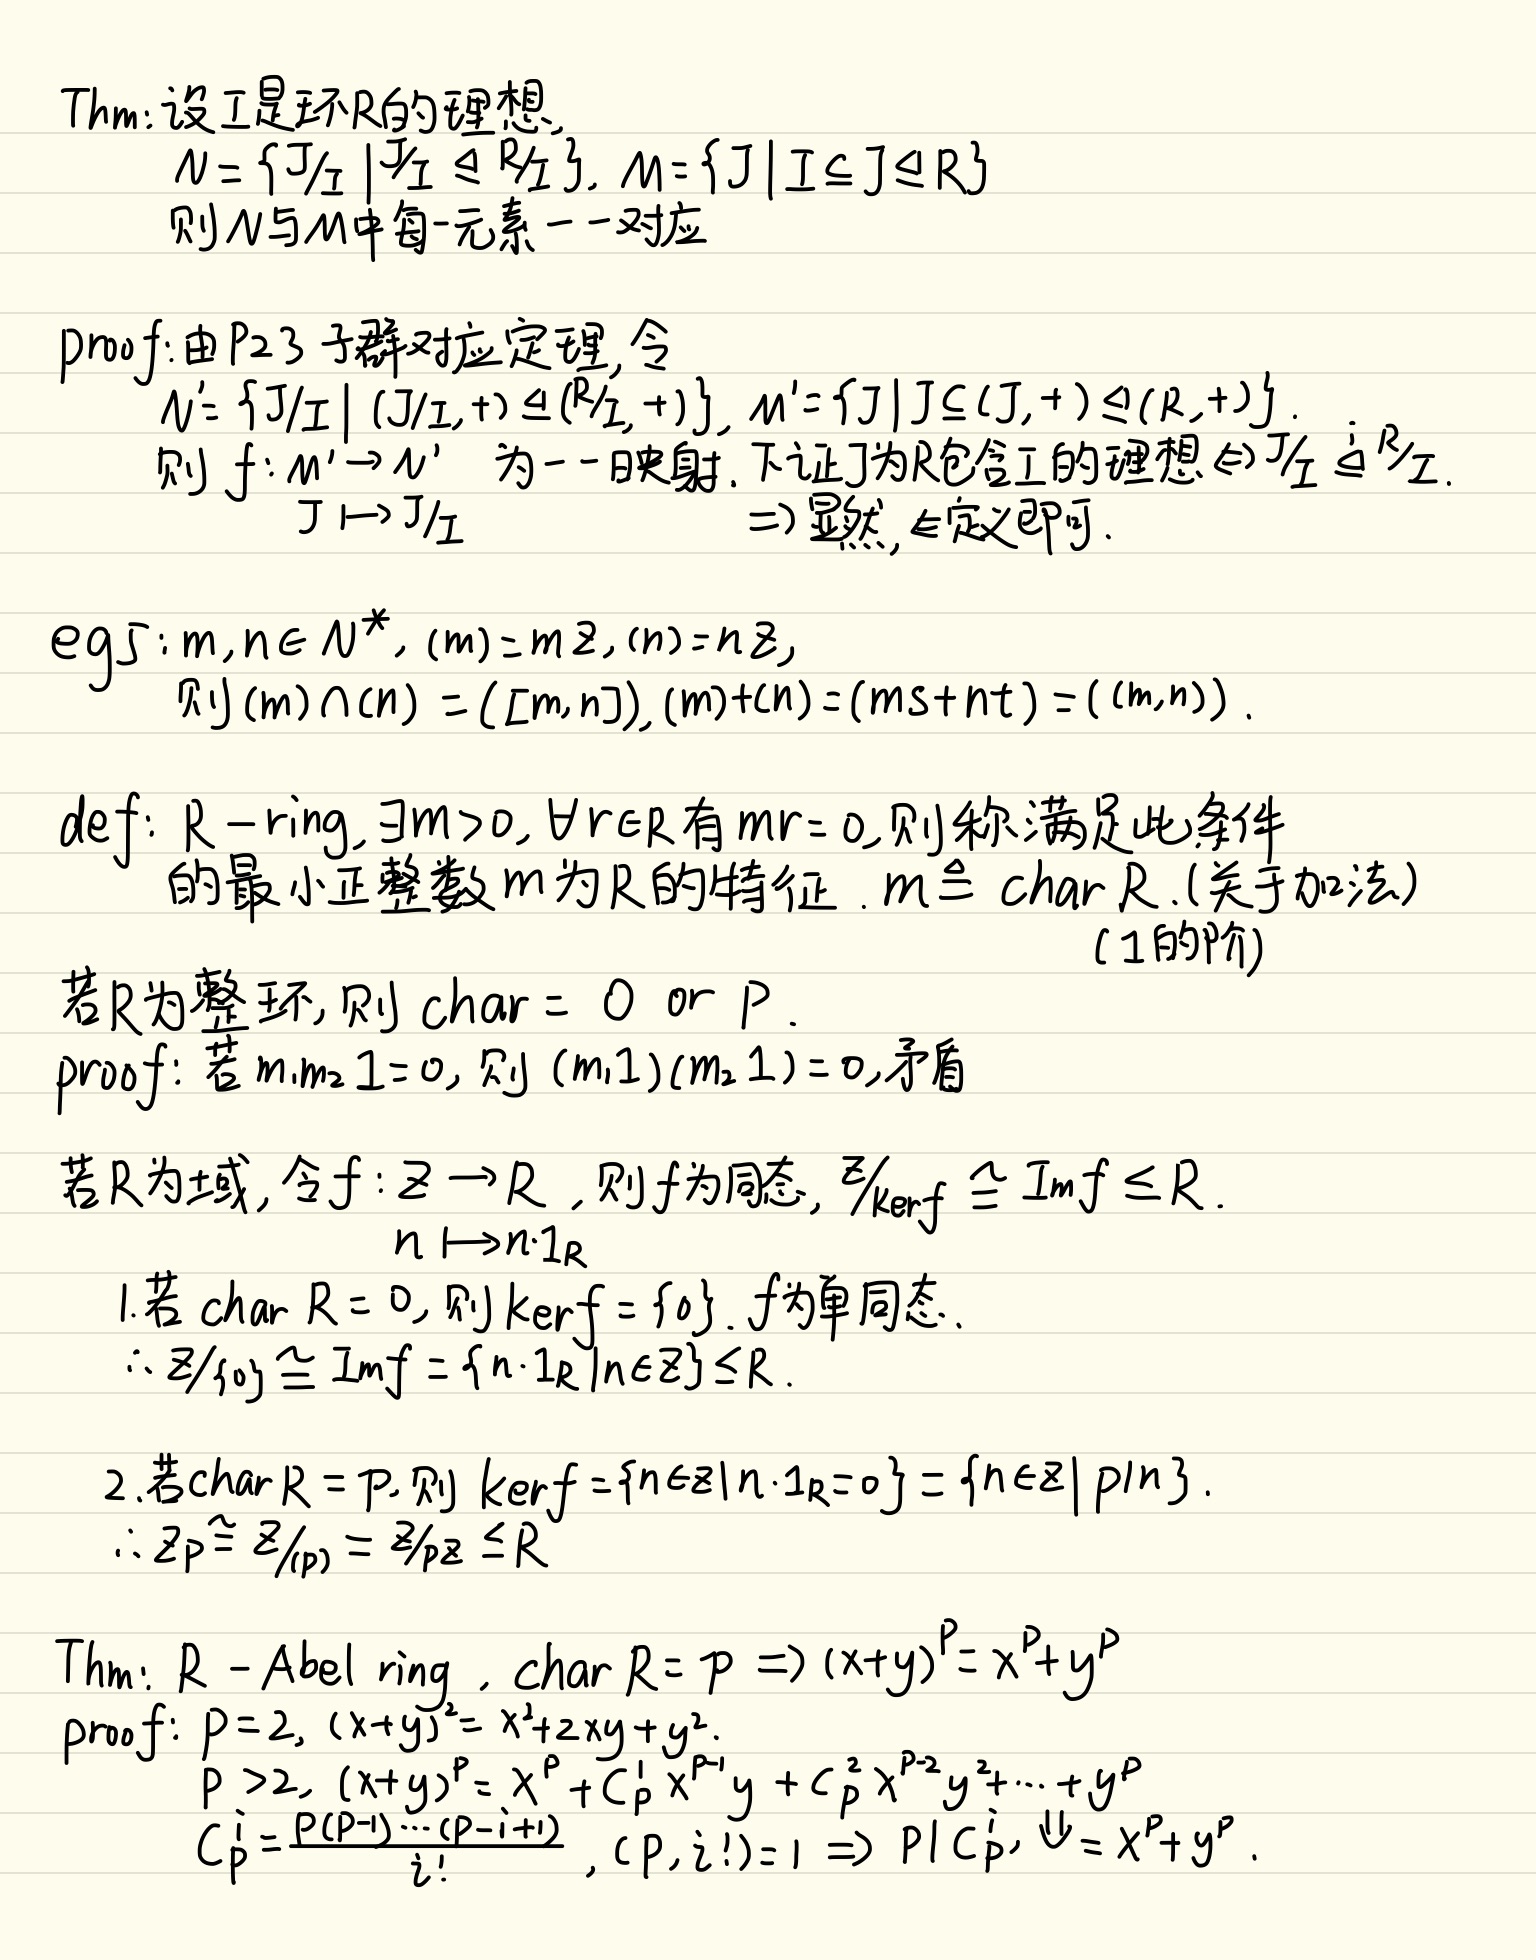 Thm: 设I是环R的理想,
N = {J/I | J/I ⊴ R/I}, M = {J | I ⊆ J ⊴ R}
则N与M中每一元素一一对应
proof: 由P23 子群对应定理, 令
N' = {J/I | (J/I, +) ⊴ (R/I, +)}, M' = {J | J ⊆ (J, +) ⊴ (R, +)}.
则 f: M' → N' 为一一映射. 下证J为R包含I的理想 ⇔ J/I ⊴ R/I.
J ↦ J/I ⇒ 显然, ⇐ 定义即可.
egs: m, n ∈ N*, (m) = mZ, (n) = nZ,
则 (m) ∩ (n) = ([m, n]), (m) + (n) = (ms + nt) = ((m, n)).
def: R - ring, ∃m > 0, ∀r ∈ R 有 mr = 0, 则称满足此条件
的最小正整数m为R的特征. m ≙ char R. (关于加法)
(1的阶)
若R为整环, 则 char = 0 or p.
proof: 若 m₁m₂1 = 0, 则 (m₁1)(m₂1) = 0, 矛盾
若R为域, 令 f: Z → R, 则f为同态, Z/kerf ≅ Imf ≤ R.
n ↦ n·1_R
1. 若 char R = 0, 则 kerf = {0}. f为单同态.
∴ Z/{0} ≅ Imf = {n·1_R | n ∈ Z} ≤ R.
2. 若 char R = p, 则 kerf = {n ∈ Z | n·1_R = 0} = {n ∈ Z | p | n}.
∴ Z_p ≅ Z/(p) = Z/pZ ≤ R
Thm: R - Abel ring, char R = p ⇒ (x+y)^p = x^p + y^p
proof: p = 2, (x+y)² = x² + 2xy + y².
p > 2, (x+y)^p = x^p + C_p^1 x^{p-1} y + C_p^2 x^{p-2} y² + ··· + y^p
C_p^i = p(p-1)···(p-i+1) / i!, (p, i!) = 1 ⇒ p | C_p^i, ⇓ = x^p + y^p.